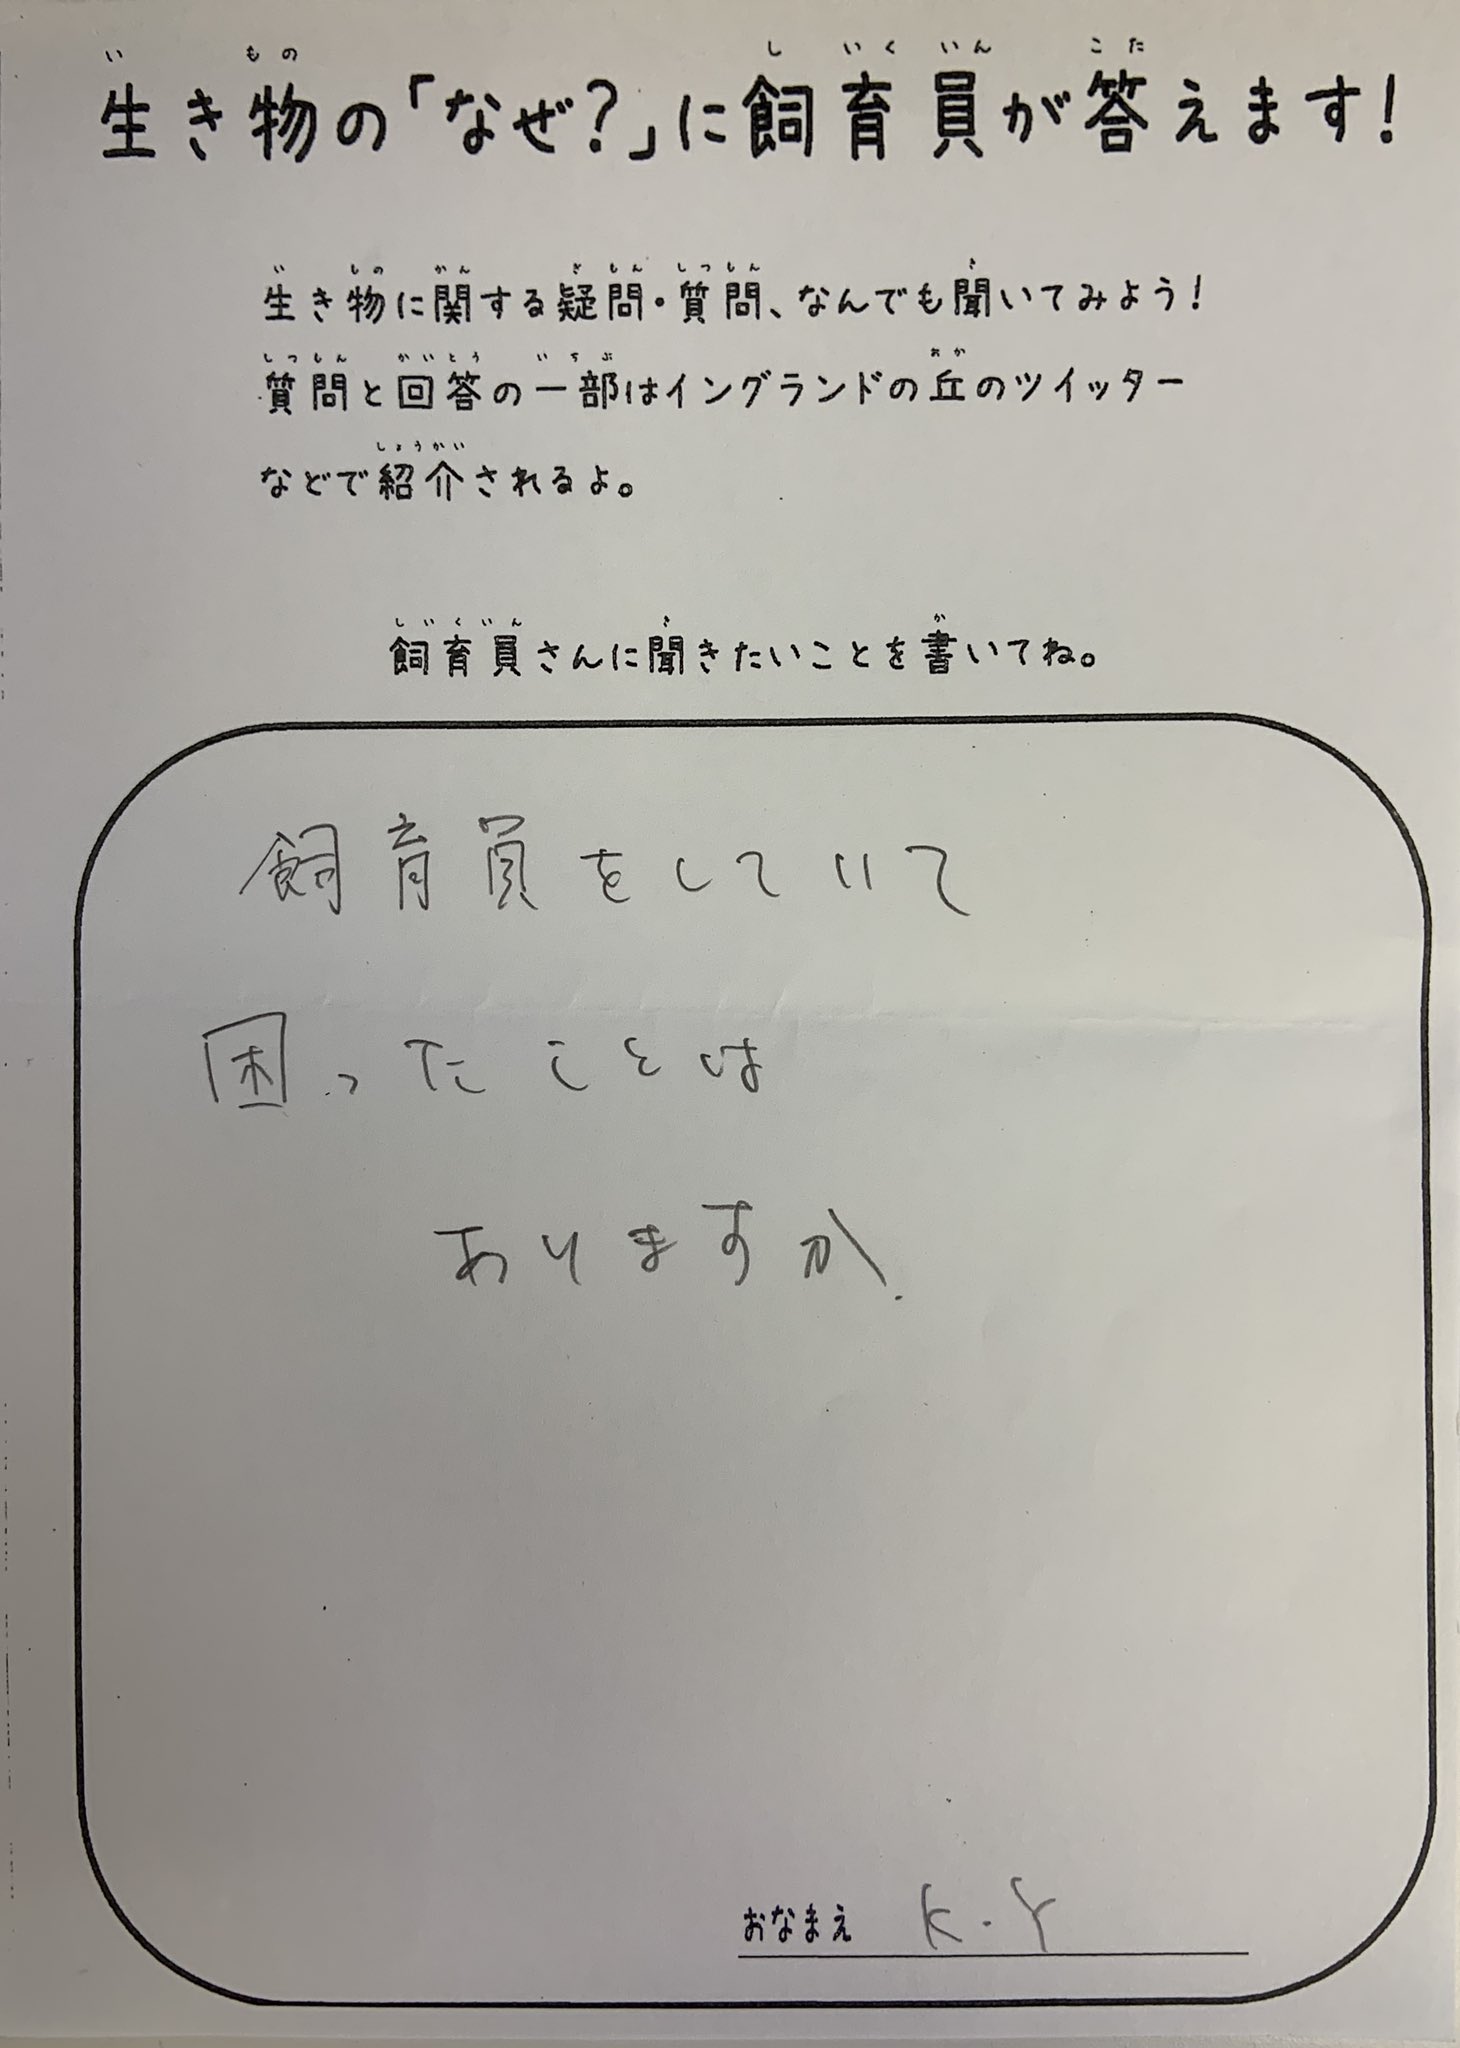 生き物の「なぜ？」に飼育員が答えます！
生き物に関する疑問・質問、なんでも聞いてみよう！
質問と回答の一部はイングランドの丘のツイッター
などで紹介されるよ。
飼育員さんに聞きたいことを書いてね。
飼育員をしていて
困ったことは
ありますか.
おなまえ K.Y